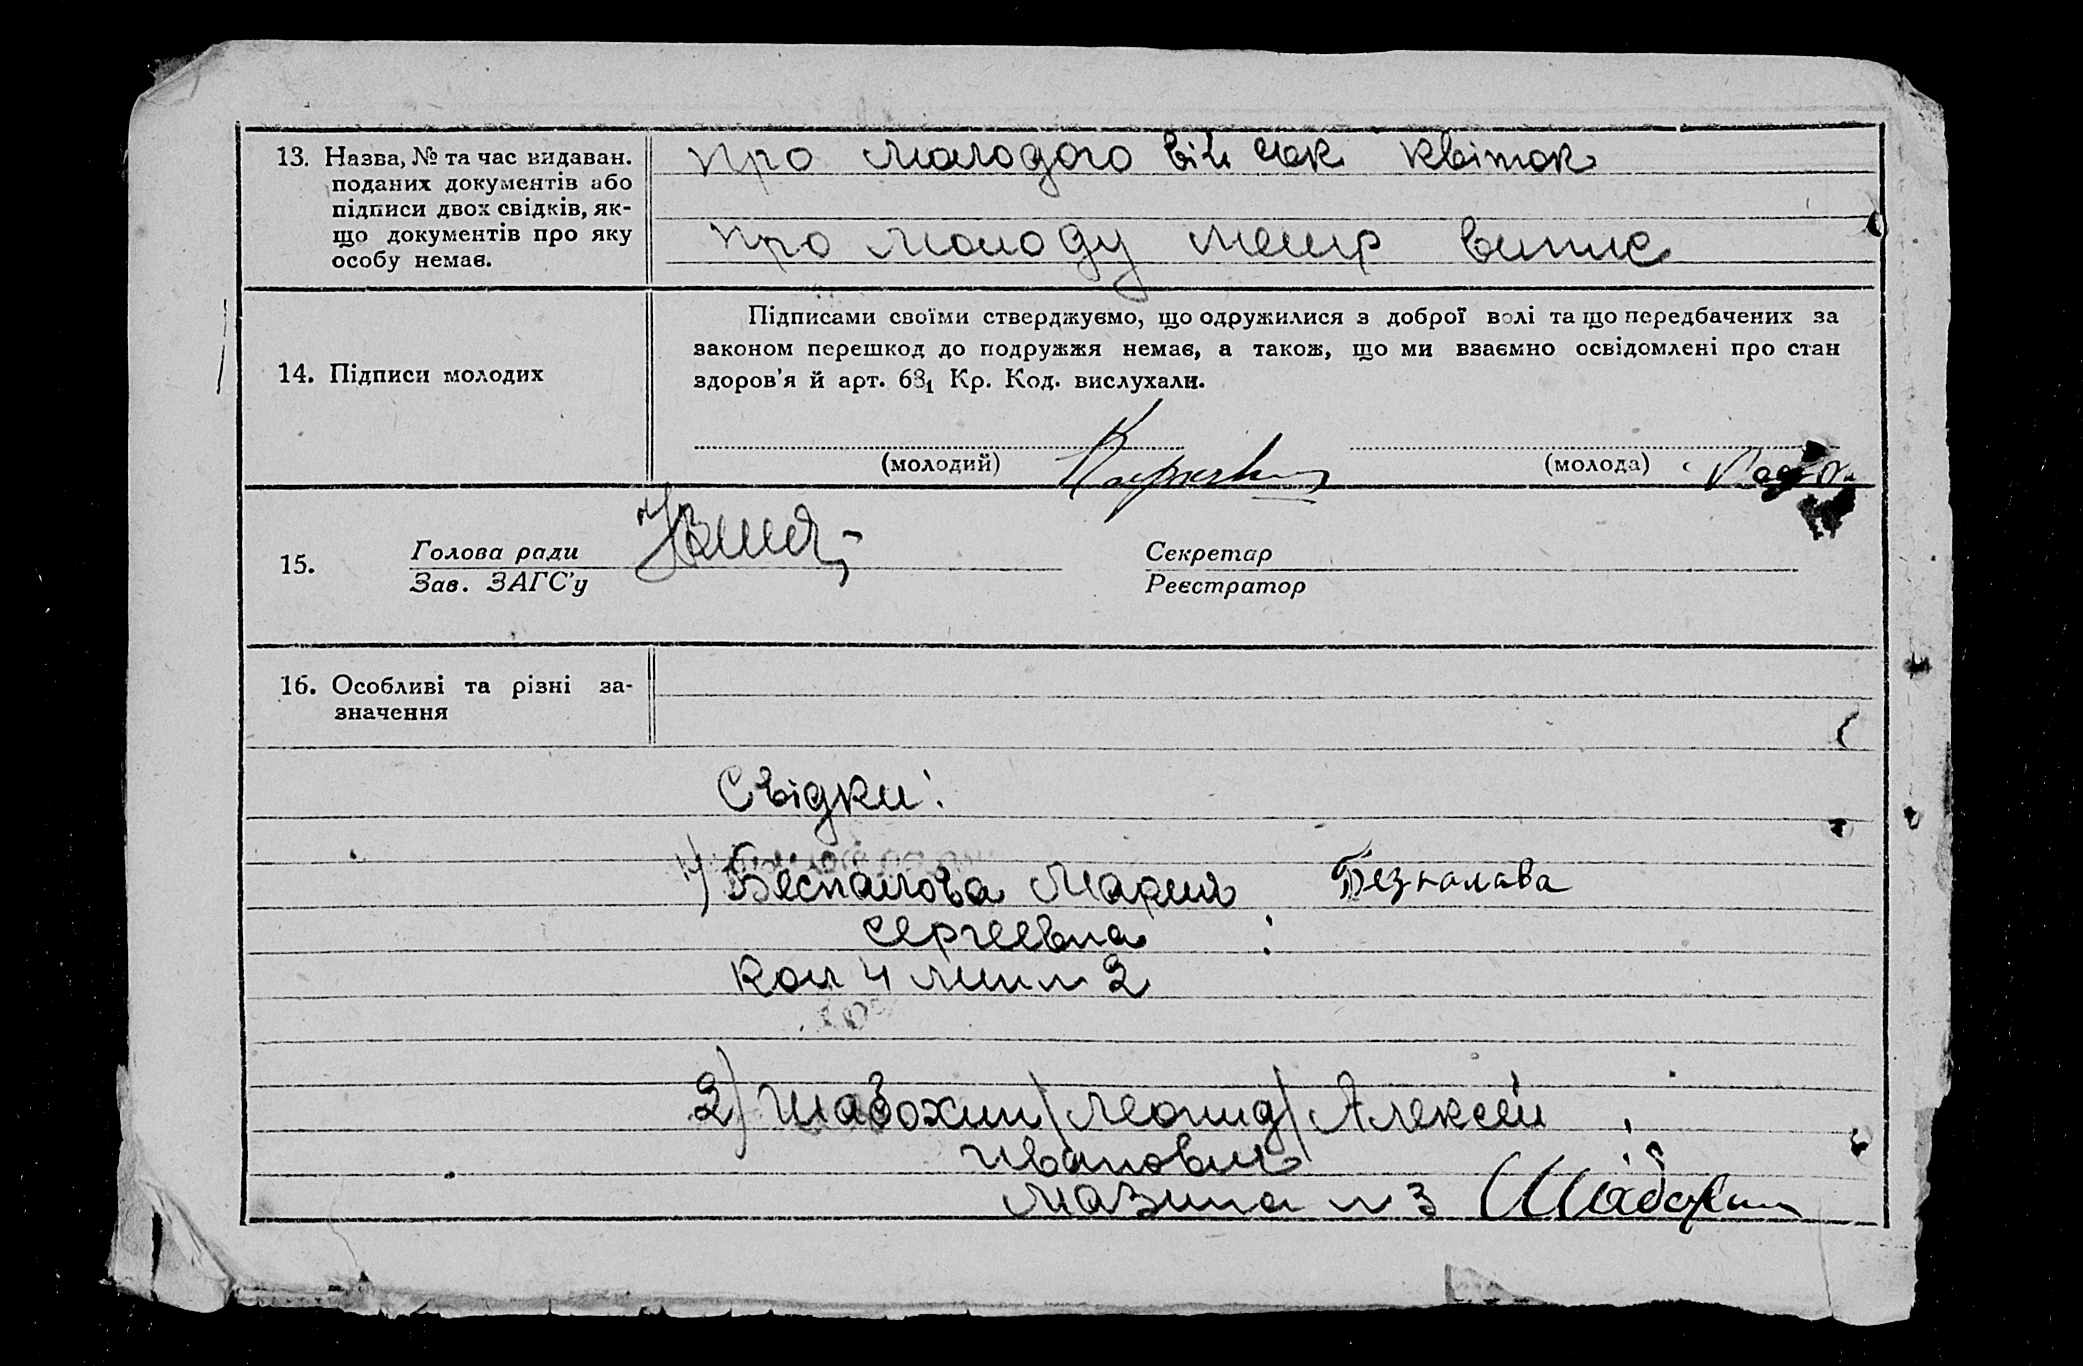 13. Назва, № та час видаван.
поданих документів або
підписи двох свідків, як-
що документів про яку
особу немає.
про молодого військ квиток
про молоду метр витис
14. Підписи молодих
Підписами своїми стверджуємо, що одружилися з доброї волі та що передбачених за
законом перешкод до подружжя немає, а також, що ми взаємно освідомлені про стан
здоров'я й арт. 68₁ Кр. Код. вислухали.
(молодий)
(молода)
15.
Голова ради
Зав. ЗАГС'у
Секретар
Реєстратор
16. Особливі та різні за-
значення
Свідки:
1) Беспалова Мария Безпалава
Сергеевна
4 2
2) Шабохин / Леонид / Алексей
Иванович
Мазина № 3 Шабохин